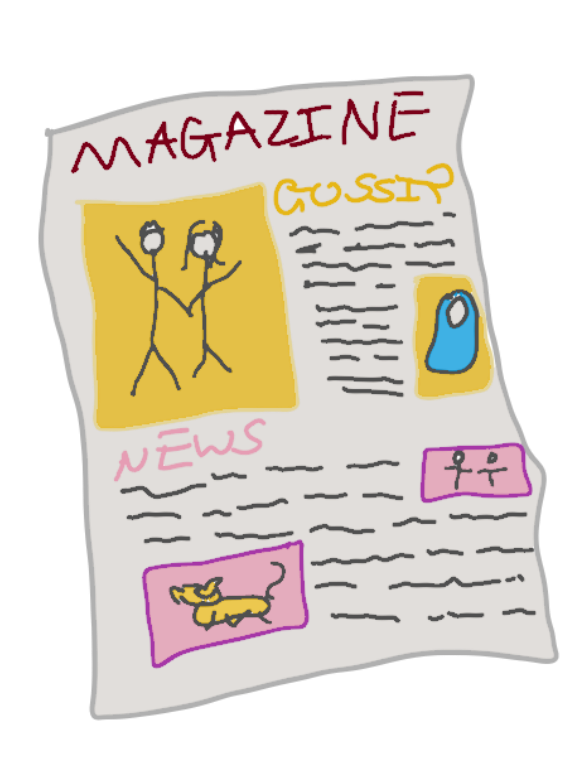 MAGAZINE
GOSSIP
NEWS